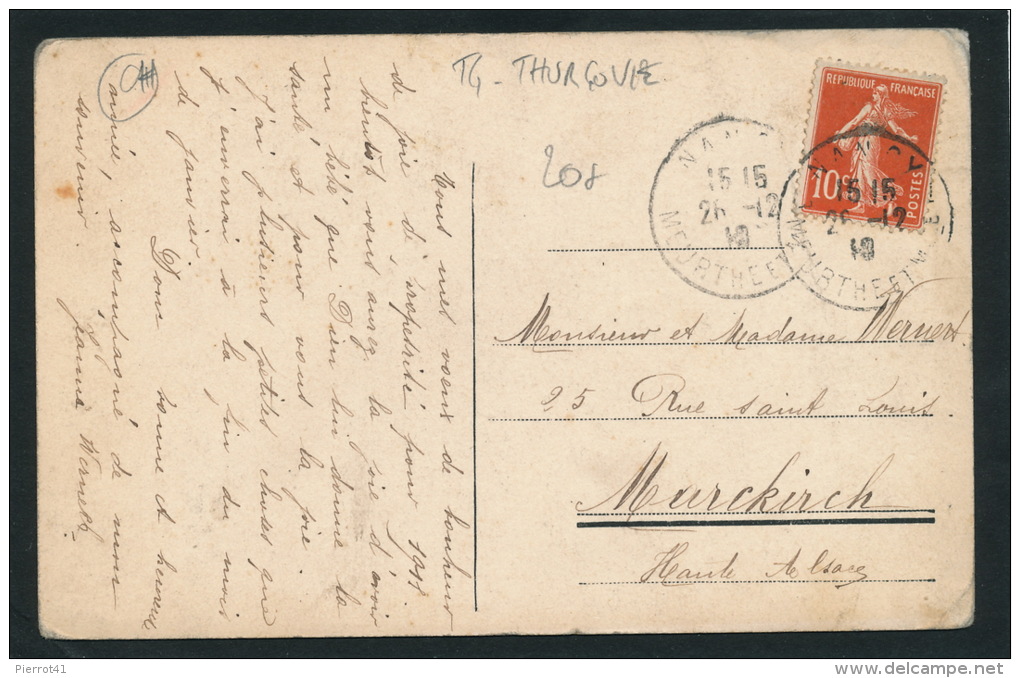 TG - THURGOVIE
208
RÉPUBLIQUE FRANÇAISE
10
POSTES
NANCY
15 15
26 -12
10
MEURTHE ET M
NANCY
15 15
26 -12
10
MEURTHE ET M
Tous mes voeux de bonheur
de joie
bientôt vous aurez la joie d'avoir
un bébé que Dieu lui donne la
santé et pour vous la joie!
j'ai plusieurs petites choses que
j'enverrai à la fin du mois
de janvier.
Donc bonne et heureuse
année, accompagné de mon
souvenir. Jeanne Wernert
Monsieur et Madame Wernert.
25 Rue saint Louis
Murckirch
Haute Alsace
Pierrot41
www.delcampe.net